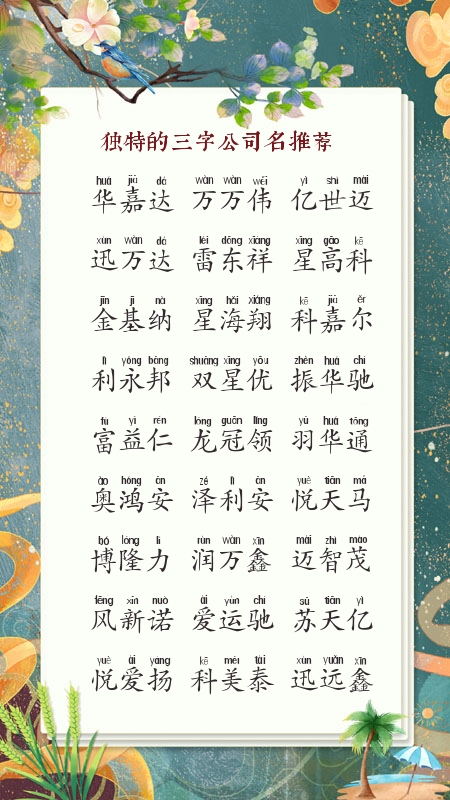 独特的三字公司名推荐
huá jiā dá wàn wàn wěi yì shì mài
华嘉达 万万伟 亿世迈
xùn wàn dá léi dōng xiáng xīng gāo kē
迅万达 雷东祥 星高科
jīn jī nà xīng hǎi xiáng kē jiā ěr
金基纳 星海翔 科嘉尔
lì yǒng bāng shuāng xīng yōu zhèn huá chí
利永邦 双星优 振华驰
fù yì rén lóng guān lǐng yǔ huá tōng
富益仁 龙冠领 羽华通
ào hóng ān zé lì ān yuè tiān mǎ
奥鸿安 泽利安 悦天马
bó lóng lì rùn wàn xīn mài zhì mào
博隆力 润万鑫 迈智茂
fēng xīn nuò ài yùn chí sū tiān yì
风新诺 爱运驰 苏天亿
yuè ài yáng kē měi tài xùn yuǎn xīn
悦爱扬 科美泰 迅远鑫